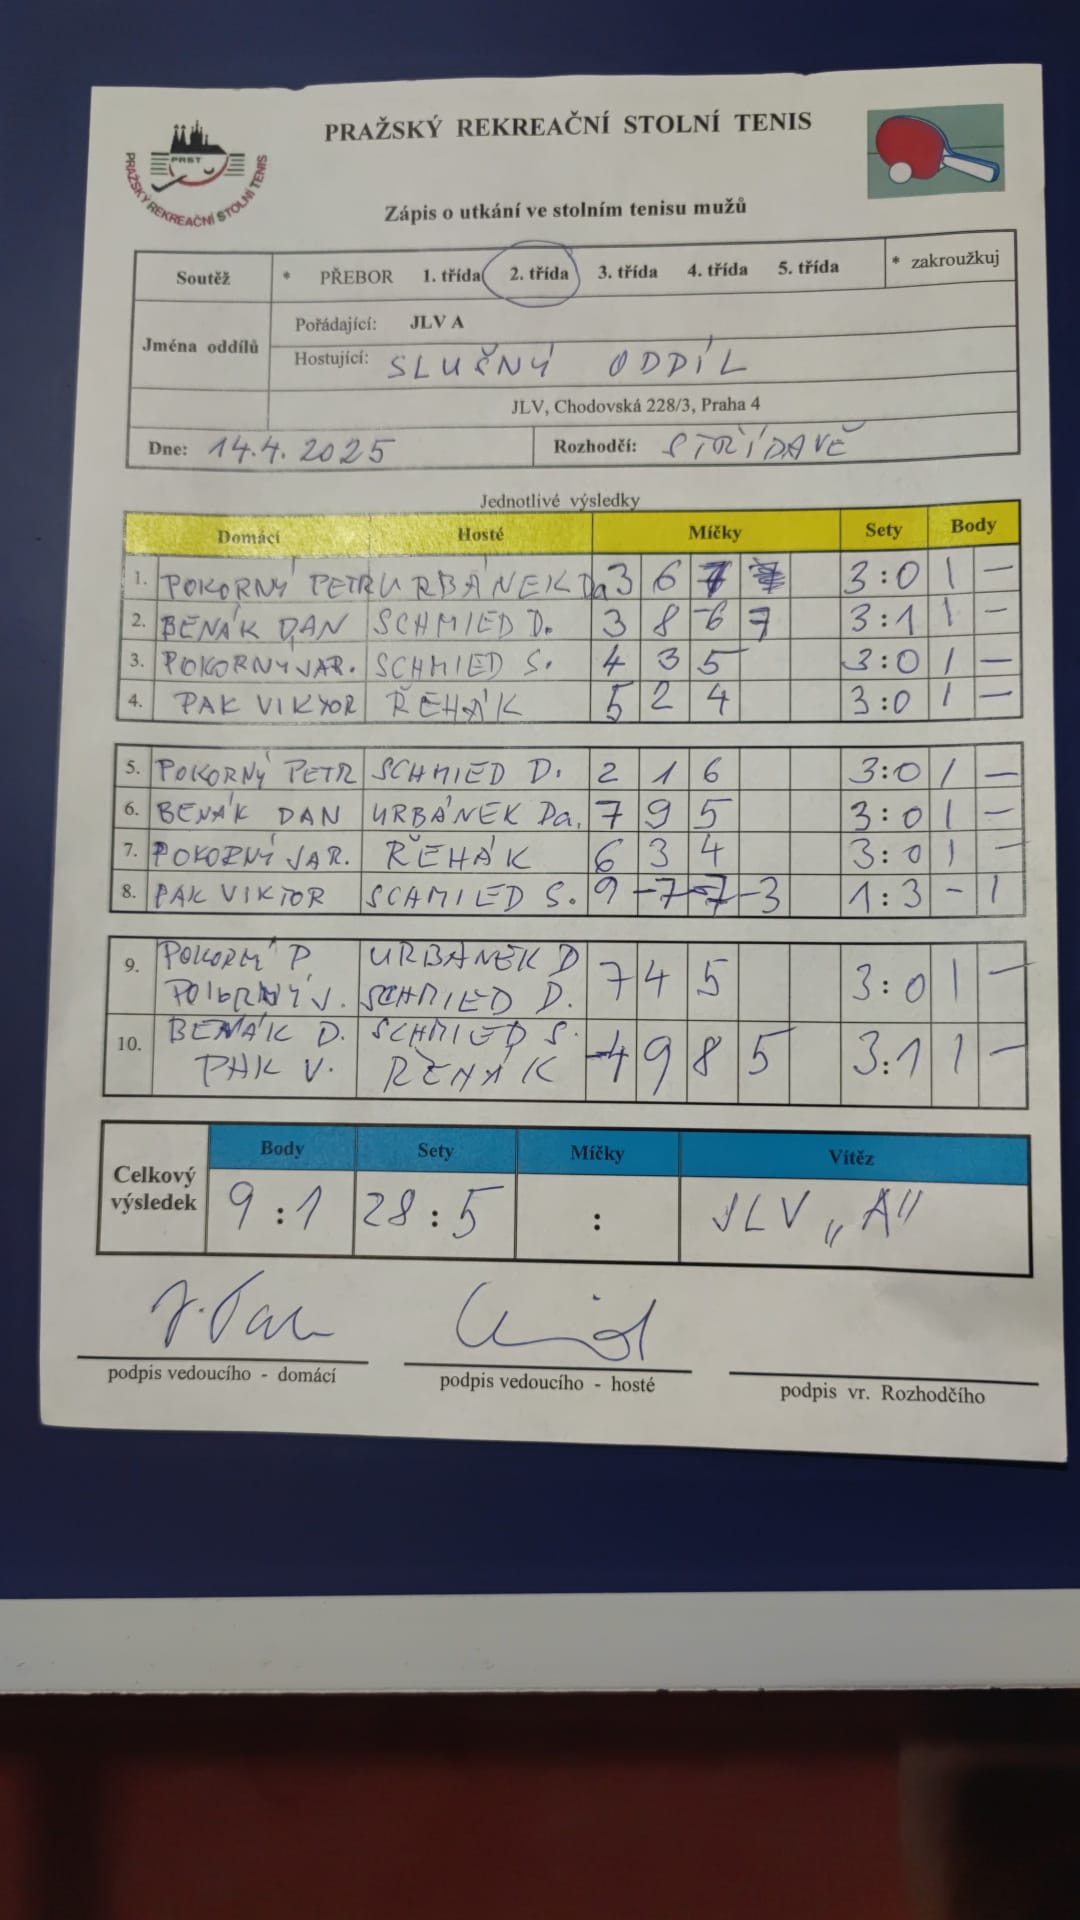 PRAŽSKÝ REKREAČNÍ STOLNÍ TENIS
PRST
PRAŽSKÝ REKREAČNÍ STOLNÍ TENIS
Zápis o utkání ve stolním tenisu mužů
Soutěž * PŘEBOR 1. třída 2. třída 3. třída 4. třída 5. třída * zakroužkuj
Jména oddílů
Pořádající: JLV A
Hostující: SLUŠNÝ ODDÍL
JLV, Chodovská 228/3, Praha 4
Dne: 14.4.2025 Rozhodčí: STŘÍDAVĚ
Jednotlivé výsledky
Domácí Hosté Míčky Sety Body
1. POKORNÝ PETR URBÁNEK Da 3 6 7 3:0 1 –
2. BENÁK DAN SCHMIED D. 3 8 -6 7 3:1 1 –
3. POKORNÝ JAR. SCHMIED S. 4 3 5 3:0 1 –
4. PAK VIKTOR ŘEHÁK 5 2 4 3:0 1 –
5. POKORNÝ PETR SCHMIED D. 2 1 6 3:0 1 –
6. BENÁK DAN URBÁNEK Da. 7 9 5 3:0 1 –
7. POKORNÝ JAR. ŘEHÁK 6 3 4 3:0 1 –
8. PAK VIKTOR SCHMIED S. 9 -7 -7 -3 1:3 – 1
9. POKORNÝ P URBÁNEK D 7 4 5 3:0 1 –
POKORNÝ J. SCHMIED D.
10. BENÁK D. SCHMIED S. -4 9 8 5 3:1 1 –
PAK V. ŘEHÁK
Celkový výsledek
Body Sety Míčky Vítěz
9:1 28:5 : JLV „A"
podpis vedoucího - domácí podpis vedoucího - hosté podpis vr. Rozhodčího